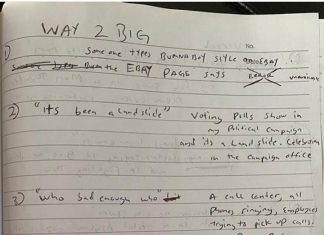 WAY 2 BIG
NO.
1) Someone types BURNA BOY STYLE ON EBAY
Burn the EBAY PAGE says ERROR unavailable
2) "its been a Landslide" Voting Polls show in
my Political campaign
and its a Landslide. Celebration
in the campaign office
3) "Who bad enough who" A call center, all
Phones ringing, Employees
trying to pick up calls.